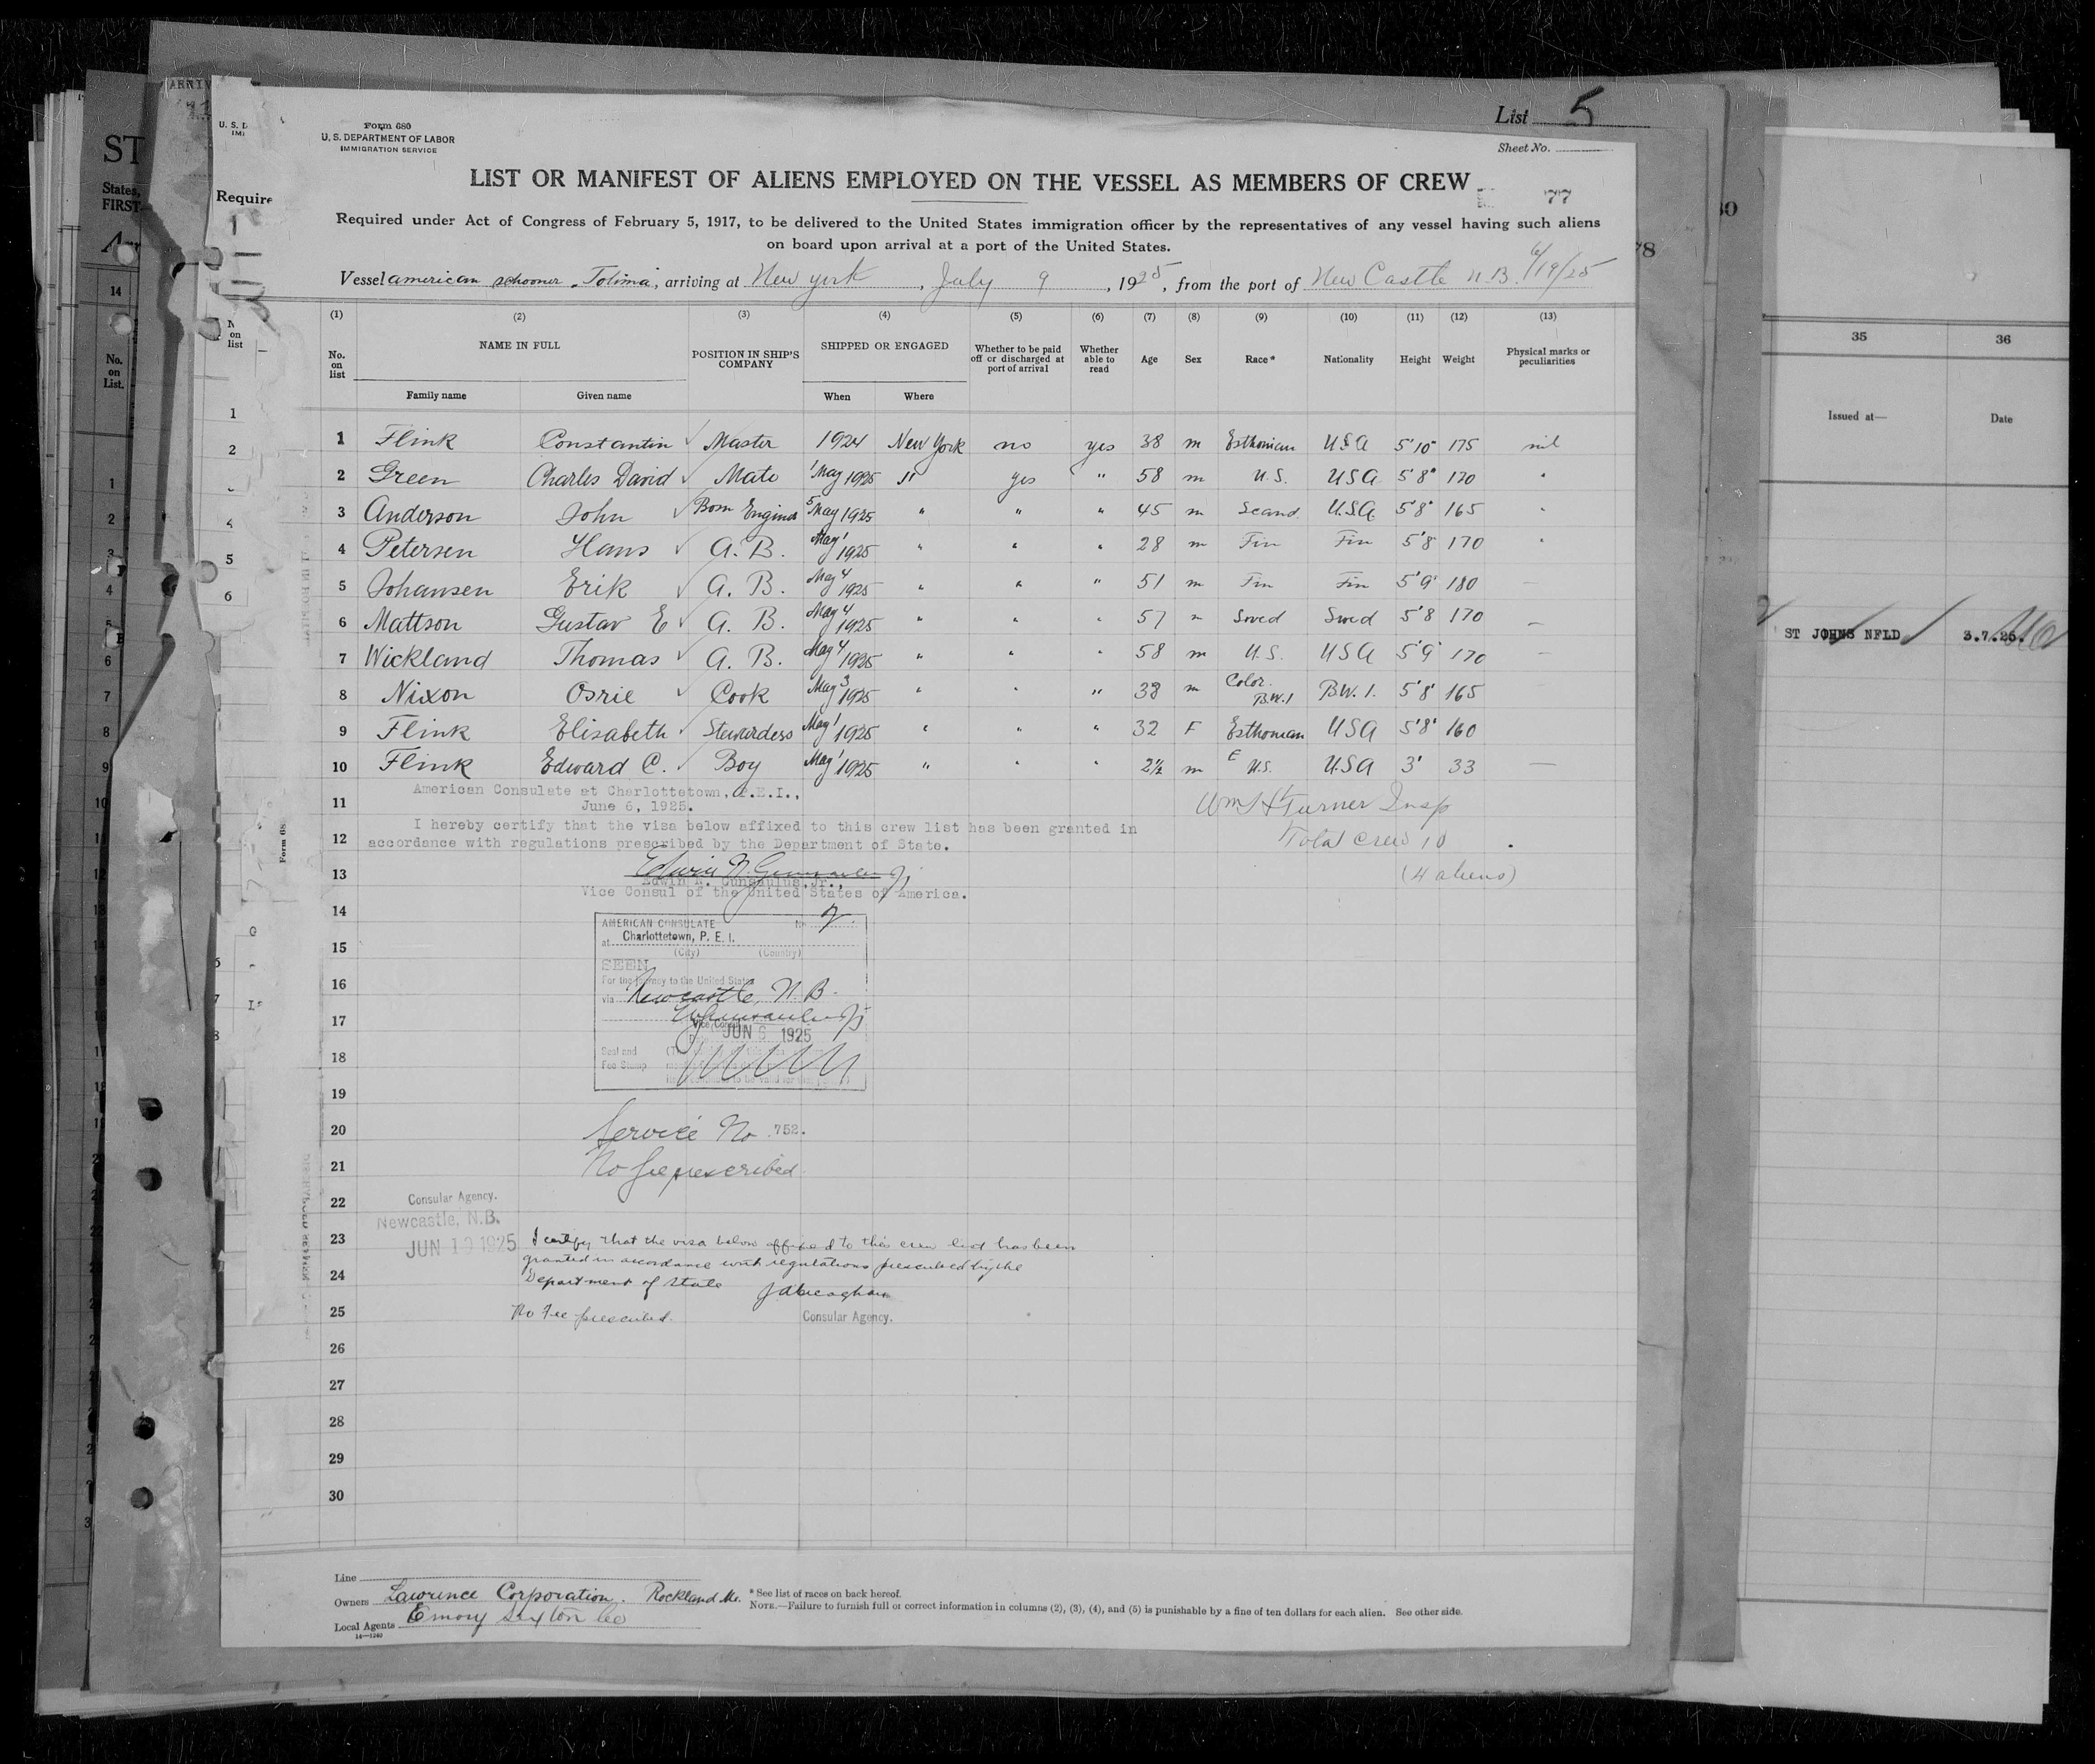 List 5
Form 680
U. S. DEPARTMENT OF LABOR
IMMIGRATION SERVICE
Sheet No.
LIST OR MANIFEST OF ALIENS EMPLOYED ON THE VESSEL AS MEMBERS OF CREW
77
Required under Act of Congress of February 5, 1917, to be delivered to the United States immigration officer by the representatives of any vessel having such aliens
on board upon arrival at a port of the United States.
Vessel american schooner "Tolima", arriving at New york, July 9, 1925, from the port of New Castle N.B. 6/19/25
(1) (2) (3) (4) (5) (6) (7) (8) (9) (10) (11) (12) (13)
No. on list NAME IN FULL Family name Given name POSITION IN SHIP'S COMPANY SHIPPED OR ENGAGED When Where Whether to be paid off or discharged at port of arrival Whether able to read Age Sex Race* Nationality Height Weight Physical marks or peculiarities
1 Flink Constantin ✓ Master 1924 New York no yes 38 m Esthonian USA 5'10" 175 nil
2 Green Charles David ✓ Mate 1 May 1925 " yes " 58 m U.S. USA 5'8" 170 "
3 Anderson John ✓ 5 May 1925 " " " 45 m Scand U.S.A. 5'8" 165 "
4 Petersen Hans ✓ A. B. May 1 1925 " " " 28 m Fin Fin 5'8 170 "
5 Johansen Erik ✓ A. B. May 4 1925 " " " 51 m Fin Fin 5'9" 180 —
6 Mattson Gustav E ✓ A. B. May 4 1925 " " " 57 m Swed Swed 5'8 170 —
7 Wickland Thomas ✓ A. B. May 4 1925 " " " 58 m U.S. USA 5'9" 170 —
8 Nixon Osrie ✓ Cook May 3 1925 " " " 38 m Color. B.W.I B.W.I. 5'8" 165
9 Flink Elisabeth ✓ Stewardess May 1 1925 " " " 32 F Esthonian USA 5'8" 160
10 Flink Edward C. ✓ Boy May 1 1925 " " " 2½ m E U.S. U.S.A 3' 33 —
American Consulate at Charlottetown, P.E.I.,
June 6, 1925.
Wm H Turner Insp
I hereby certify that the visa below affixed to this crew list has been granted in
accordance with regulations prescribed by the Department of State.
Total crew 10
(4 aliens)
Edwin N. Gunsaulus, Jr.,
Vice Consul of the United States of America.
AMERICAN CONSULATE No
at Charlottetown, P. E. I.
(City) (Country)
SEEN
For the journey to the United States
via Newcastle, N. B.
Vice Consul
JUN 6 1925
Seal and
Fee Stamp
11
12
13
14
15
16
17
18
19
20
21
22
23
24
25
26
27
28
29
30
Service No 752.
No fee prescribed
Consular Agency.
Newcastle, N.B.
JUN 19 1925
I certify that the visa below affixed to this crew list has been
granted in accordance with regulations prescribed by the
Department of State
No Fee prescribed.
Consular Agency.
Line
Owners Lawrence Corporation. Rockland Me.
Local Agents Emory Sexton Co
14—1240
* See list of races on back hereof.
NOTE.—Failure to furnish full or correct information in columns (2), (3), (4), and (5) is punishable by a fine of ten dollars for each alien. See other side.
35 36
Issued at— Date
ST JOHNS NFLD 3.7.25.